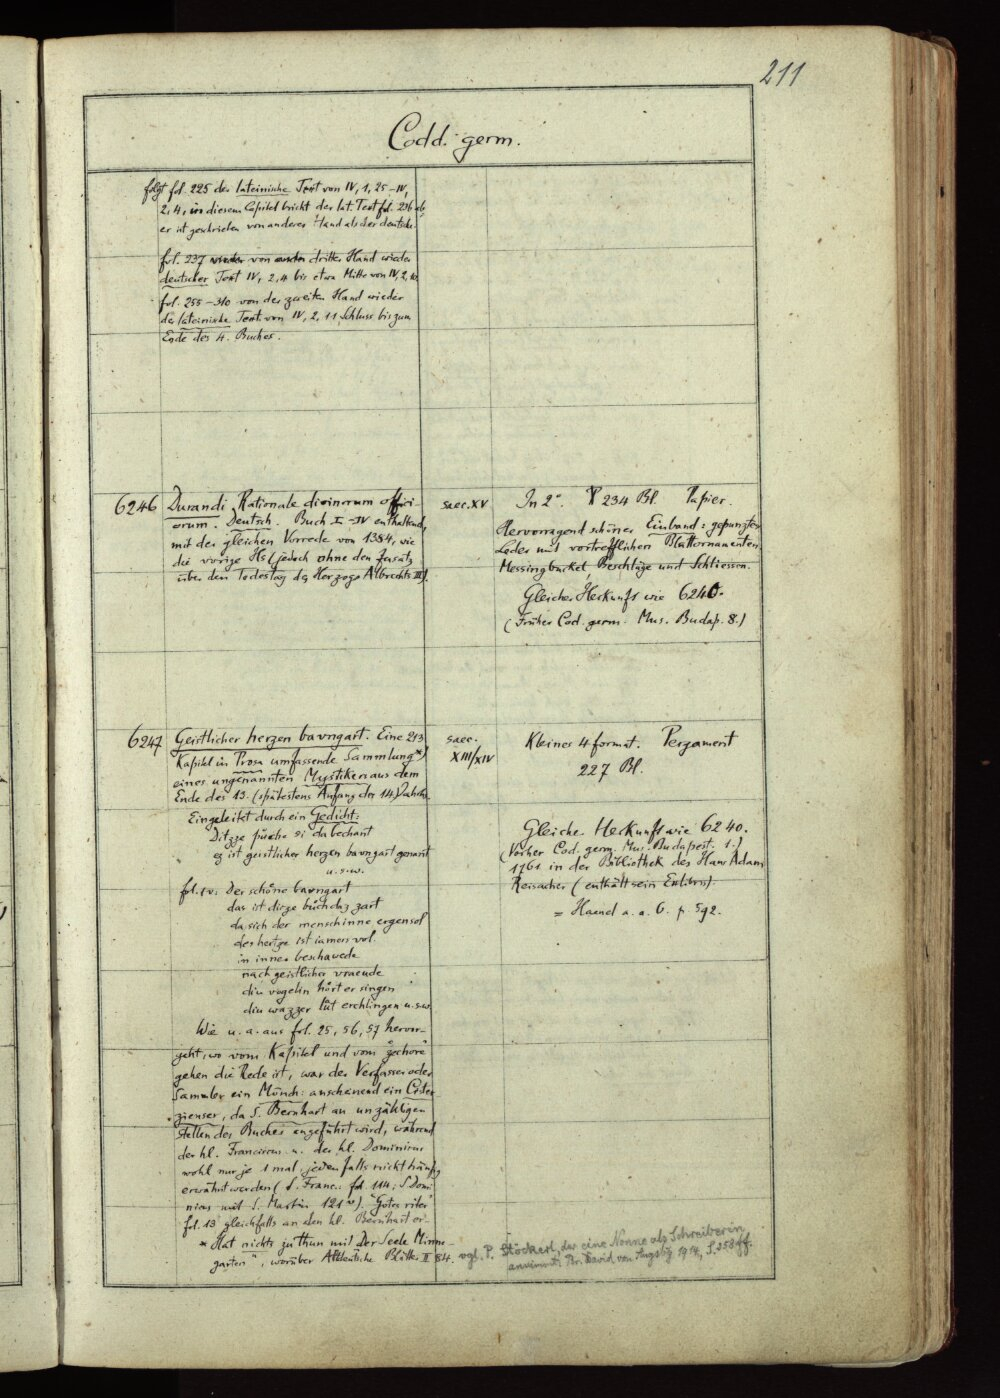 211
Codd. germ.
folgt fol. 225 der lateinische Text von IV, 1, 25 – IV,
2, 4, in diesem Capitel bricht der lat. Text fol. 236 ab,
er ist geschrieben von anderer Hand als der deutsche.
fol. 237 von dritter Hand wieder
deutscher Text IV, 2, 4 bis etwa Mitte von IV, 2, 10.
fol. 255 – 310 von der zweiten Hand wieder
der lateinische Text von IV, 2, 11 Schluss bis zum
Ende des 4. Buches.
6246 Durandi Rationale divinorum offici-
orum. Deutsch. Buch I–IV enthaltend,
mit der gleichen Vorrede von 1384, wie
die vorige Hs (jedoch ohne den Zusatz
über den Todestag des Herzogs Albrechts III).
saec. XV
In 2°. 234 Bl. Papier
Hervorragend schöner Einband: gepunztes
Leder mit vortrefflichen Blattornamenten
Messingbuckel, Beschläge und Schliessen.
Gleiche Herkunft wie 6240.
(Früher Cod. germ. Mus. Budap. 8.)
6247 Geistlicher herzen bavngart. Eine 213
Kapitel in Prosa umfassende Sammlung *)
eines ungenannten Mystikers aus dem
Ende des 13. (spätestens Anfang des 14.) Jahrh.
Eingeleitet durch ein Gedicht:
Ditzze püche si da bechant
ez ist geistlicher herzen bavngart genant
u.s.w.
fol. 1v: Der schöne bavngart
daz ist ditze bůch daz zart
da sich der menschinne ergen sol
des hertze ist iamers vol.
in inner beschawede
nach geistlicher vraeude
diu vogelin hört er singen
diu wazzer lůt erchlingen u.s.w
Wie u. a. aus fol. 25, 56, 57 hervor-
geht, wo vom Kapitel und vom "zechore"
gehen die Rede ist, war der Verfasser oder
Sammler ein Mönch: anscheinend ein Cister
zienser, da S. Bernhart an unzähligen
Stellen des Buches angeführt wird, während
der hl. Franciscus u. der hl. Dominicus
wohl nur je 1 mal, jedenfalls nicht häufig
erwähnt werden (S. Franc.: fol. 114; S. Domi-
nicus mit S. Martin 121v). "Gotes riter"
fol. 13 gleichfalls an den hl. Bernhart er-
* Hat nichts zu thun mit "Der Seele Minne-
garten", worüber Altdeutsche Blätter II 84.
saec.
XIII/XIV
Kleines 4 format. Pergament
227 Bl.
Gleiche Herkunft wie 6240.
(Vorher Cod. germ. Mus. Budapest. 1.)
1761 in der Bibliothek des Hans Adam
Reisacher (enthält sein Exlibris).
= Haend a. a. O. p. 592.
vgl. P. Stöckerl, der eine Nonne als Schreiberin
annimmt. Br. David von Augsbg 1914, S. 258 ff.